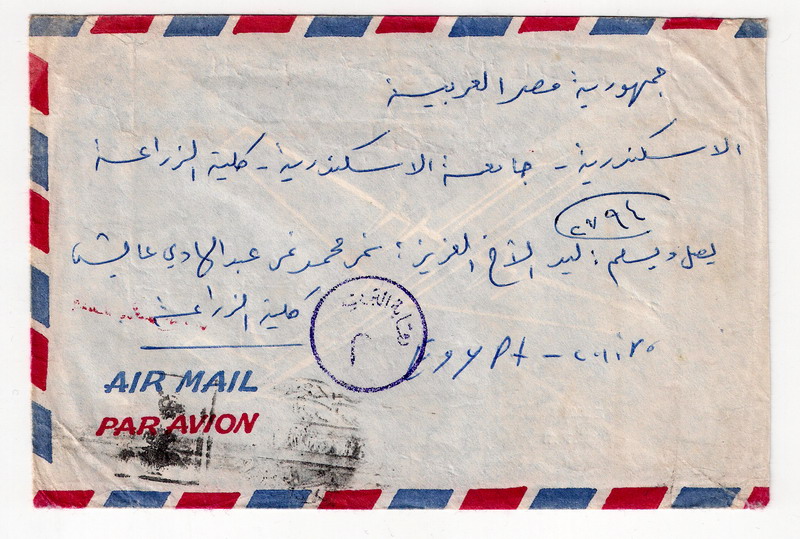 جمهورية مصر العربية
الاسكندرية - جامعة الاسكندرية - كلية الزراعة
٢٧٩٤
يصل ويسلم: ليد الأخ العزيز: نمر محمد نمر عبد الهادي عايش
كلية الزراعة
٢
Egypt - cairo
AIR MAIL
PAR AVION